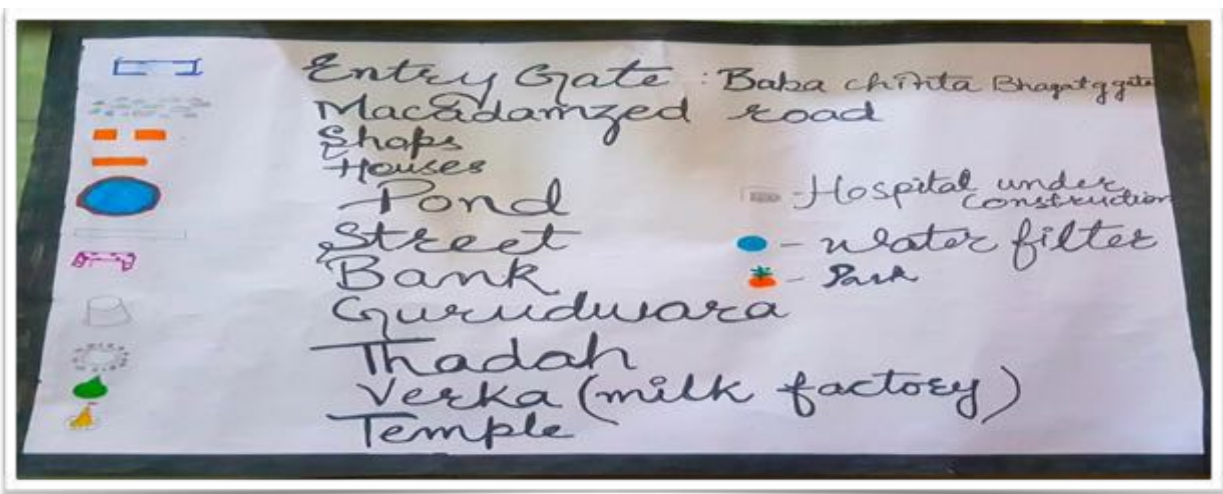 Entry Gate : Baba chinta Bhagat gate
Macadamzed road
Shops
Houses
Pond
Street
Bank
Gurudwara
Thadah
Verka (milk factory)
Temple
- Hospital under construction
- water filter
- Park